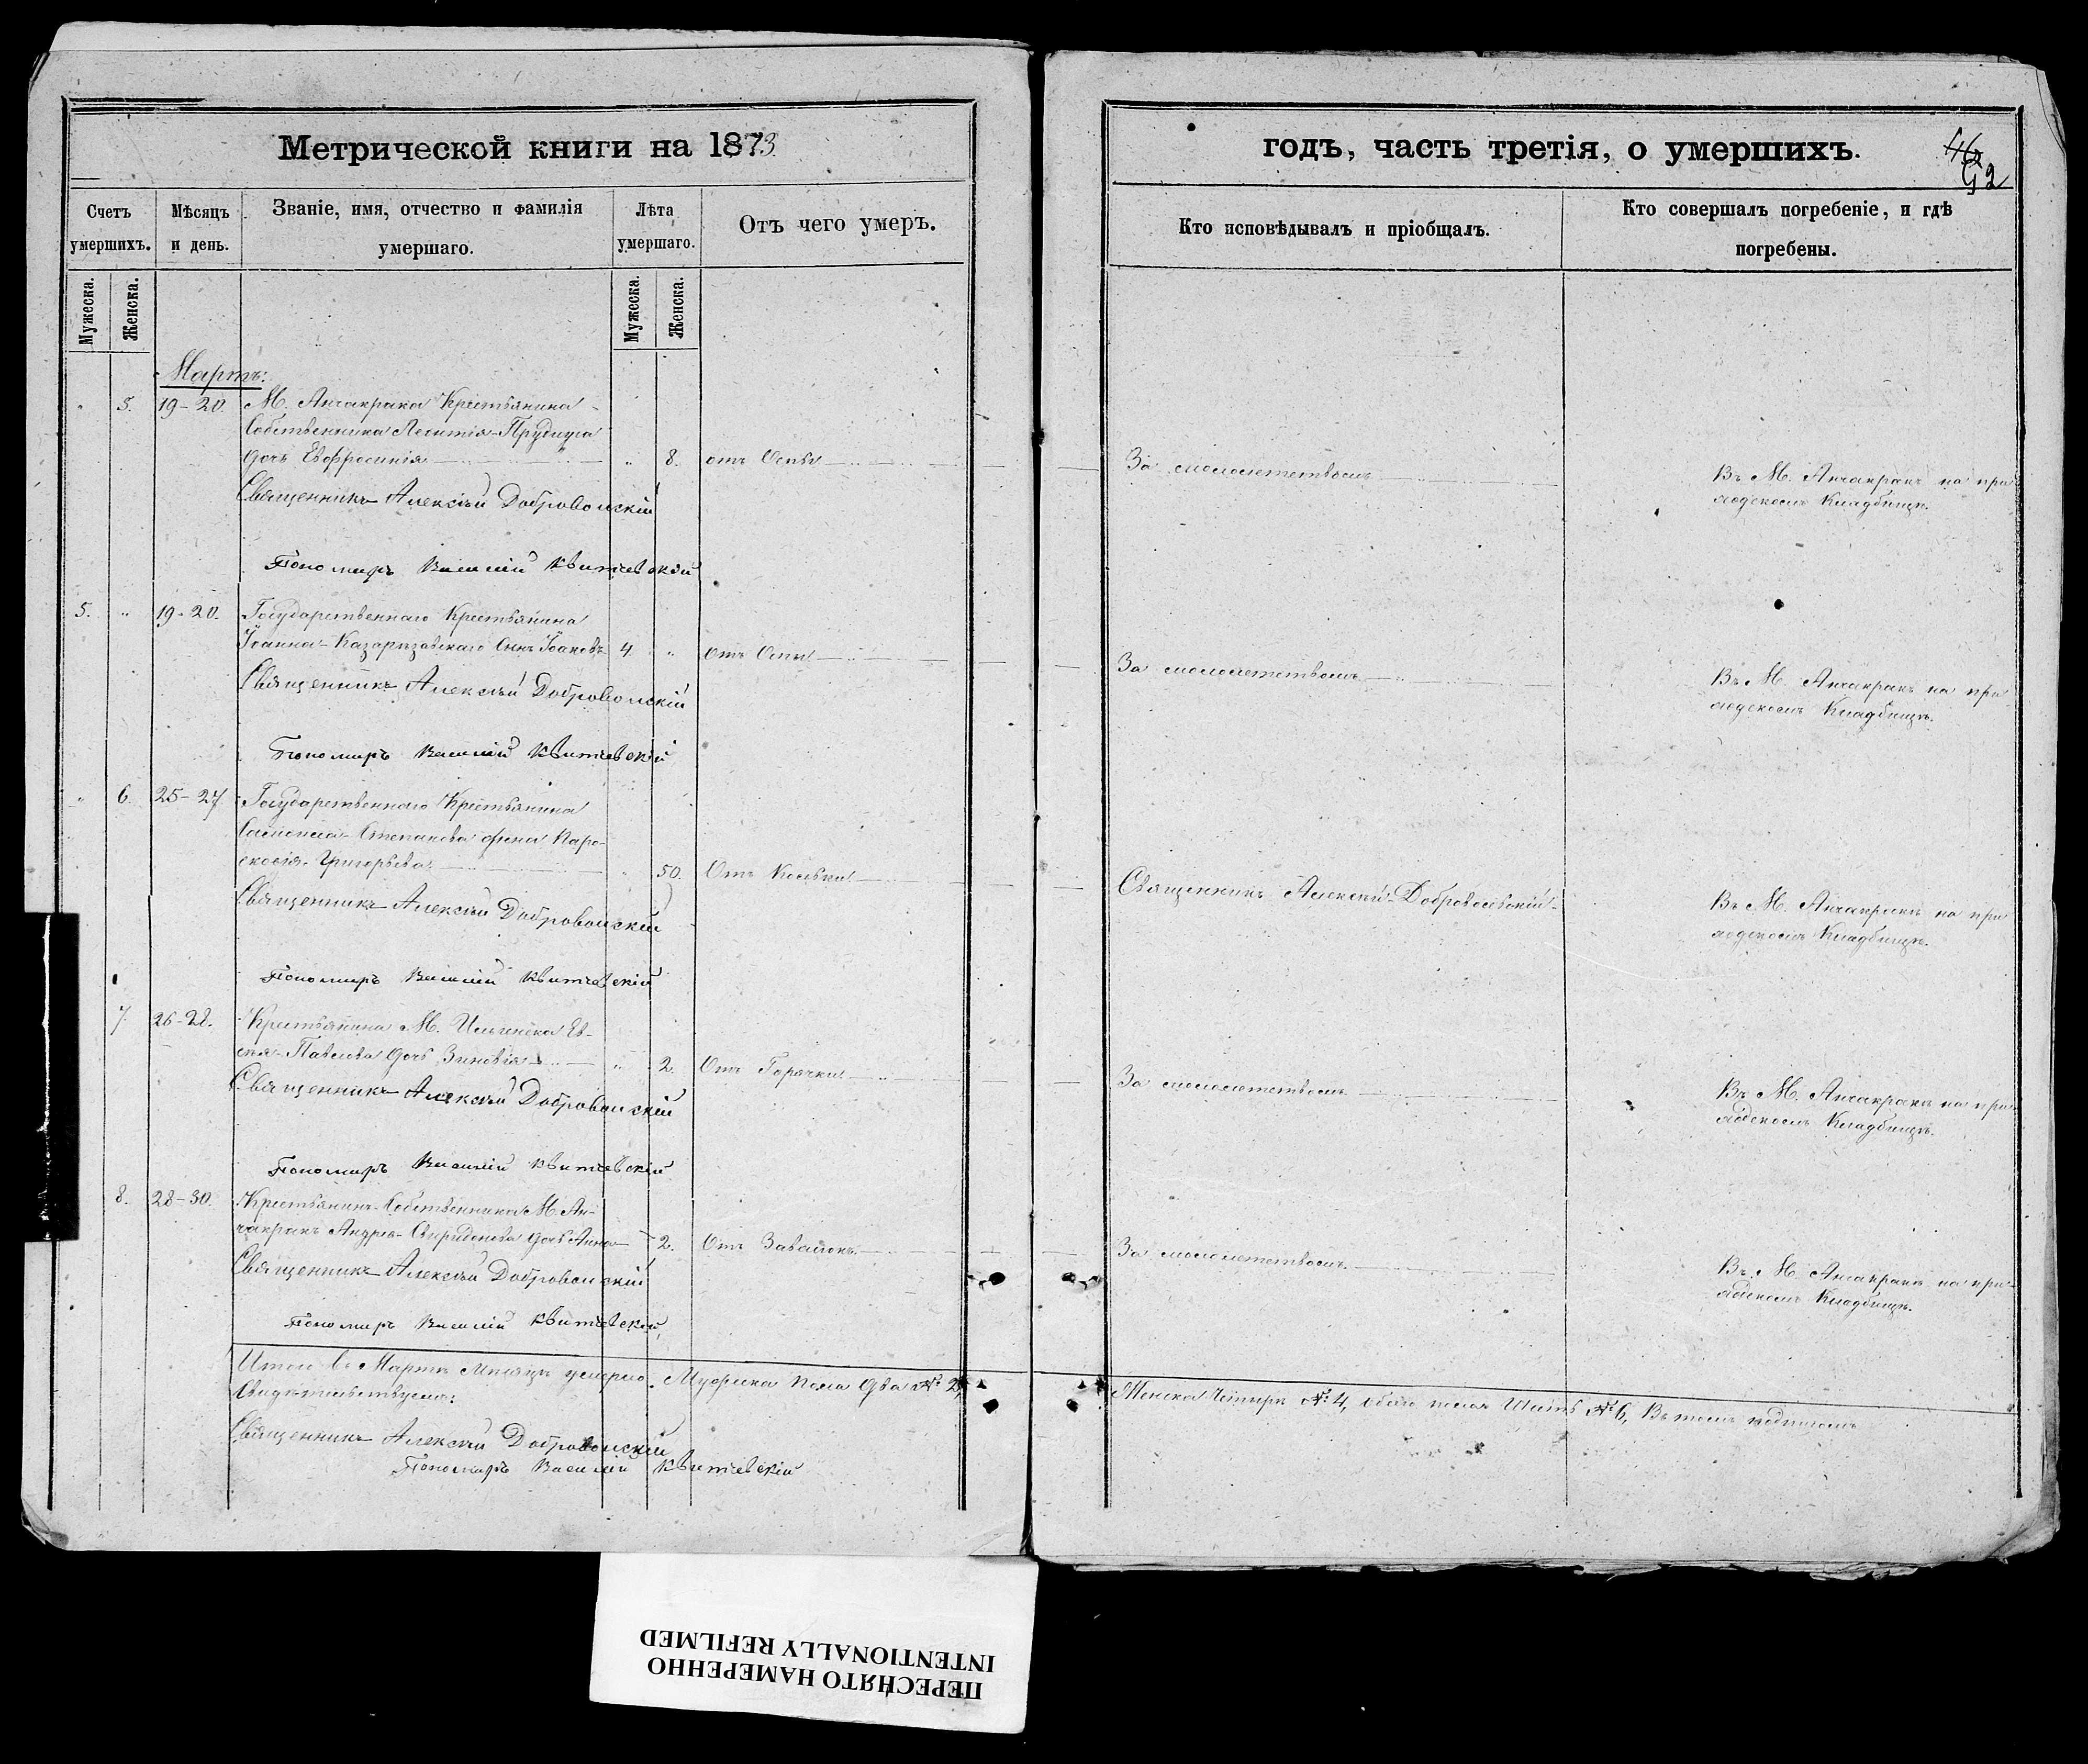 Метрической книги на 1873
годъ, часть третія, о умершихъ.
46
92
Счетъ умершихъ.
Мѣсяцъ и день.
Званіе, имя, отчество и фамилія умершаго.
Лѣта умершаго.
Отъ чего умеръ.
Кто исповѣдывалъ и пріобщалъ.
Кто совершалъ погребеніе, и гдѣ погребены.
Мужеска.
Женска.
Мужеска.
Женска.
Мартъ:
" 5. 19-20. М. Анчакрака Крестьянина
Собственника Леонтія Прудиуса
дочь Евфросинія " 8. отъ Оспы За малолѣтствомъ Въ М. Анчакракѣ на при
ходскомъ Кладбищѣ.
Священникъ Алексѣй Добровольскій
Пономарь Василій Квитчевскій
5. " 19-20. Государственнаго Крестьянина
Іоанна Сынъ 4. " отъ Оспы За малолѣтствомъ Въ М. Анчакракѣ на при
ходскомъ Кладбищѣ.
Священникъ Алексѣй Добровольскій
Пономарь Василій Квитчевскій
" 6. 25-27 Государственнаго Крестьянина
Степанова жена Пара-
скевія Григорьева " 50. Отъ Священникъ Алексѣй Добровольскій Въ М. Анчакракѣ на при
ходскомъ Кладбищѣ.
Священникъ Алексѣй Добровольскій
Пономарь Василій Квитчевскій
7. 26-28. Крестьянина М. Ев-
Павлова дочь Зиновія " 2. Отъ Горячки За малолѣтствомъ Въ М. Анчакракѣ на при
ходскомъ Кладбищѣ.
Священникъ Алексѣй Добровольскій
Пономарь Василій Квитчевскій
8. 28-30. Крестьянина Собственника М. Ан-
чакракъ Андрея Свиридонова дочь Анна 2. Отъ За малолѣтствомъ Въ М. Анчакракѣ на при
ходскомъ Кладбищѣ.
Священникъ Алексѣй Добровольскій
Пономарь Василій Квитчевскій
Итого въ Мартѣ Мѣсяцѣ умерло. Мужеска пола два № 2, Женска Четыре № 4, обоего пола Шесть № 6, Въ томъ подписомъ
Свидѣтельствуемъ:
Священникъ Алексѣй Добровольскій
Пономарь Василій Квитчевскій
ПЕРЕСНЯТО НАМЕРЕННО
INTENTIONALLY REFILMED